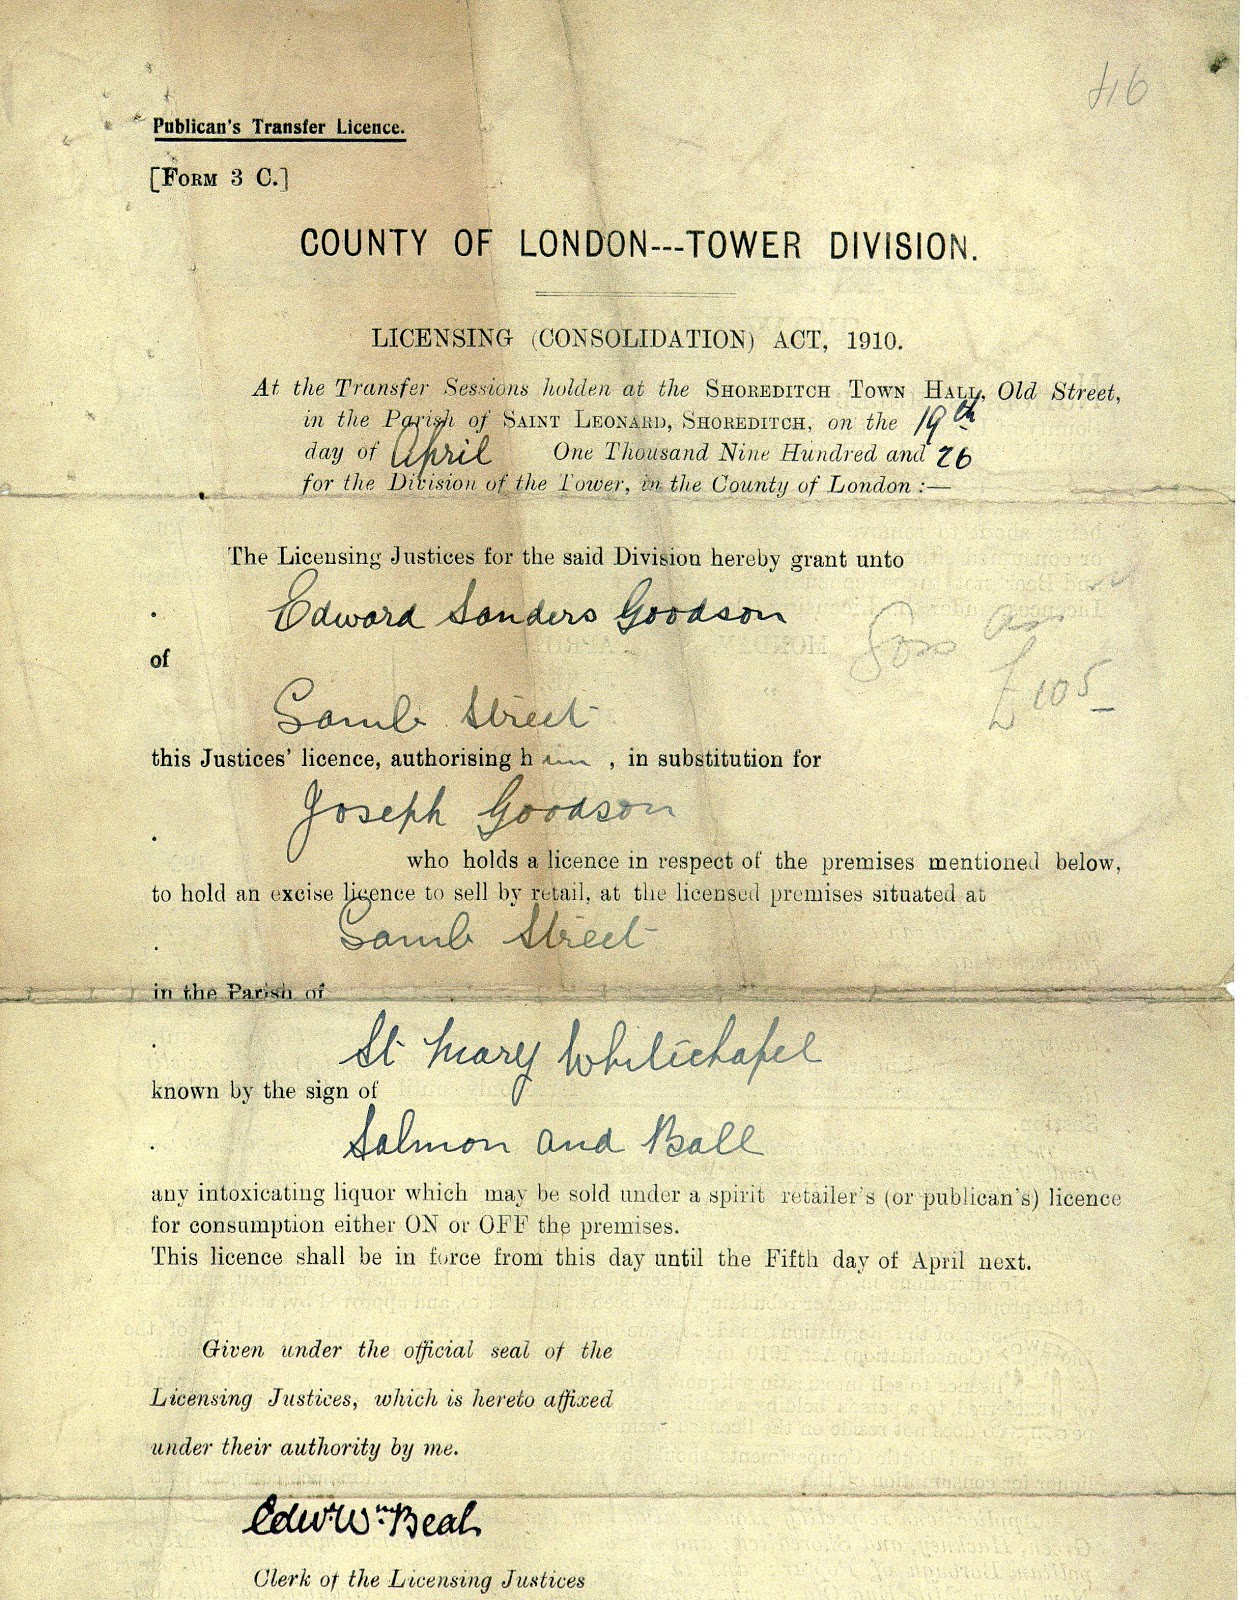 46
Publican's Transfer Licence.
[Form 3 C.]
COUNTY OF LONDON---TOWER DIVISION.
LICENSING (CONSOLIDATION) ACT, 1910.
At the Transfer Sessions holden at the Shoreditch Town Hall, Old Street,
in the Parish of Saint Leonard, Shoreditch, on the 19th
day of April One Thousand Nine Hundred and 26
for the Division of the Tower, in the County of London :—
The Licensing Justices for the said Division hereby grant unto
Edward Sanders Goodson
of
Lamb Street
£105
this Justices' licence, authorising him , in substitution for
Joseph Goodson
who holds a licence in respect of the premises mentioned below,
to hold an excise licence to sell by retail, at the licensed premises situated at
Lamb Street
in the Parish of
St Mary Whitechapel
known by the sign of
Salmon and Ball
any intoxicating liquor which may be sold under a spirit retailer's (or publican's) licence
for consumption either ON or OFF the premises.
This licence shall be in force from this day until the Fifth day of April next.
Given under the official seal of the
Licensing Justices, which is hereto affixed
under their authority by me.
Edwd. Wm. Beal
Clerk of the Licensing Justices